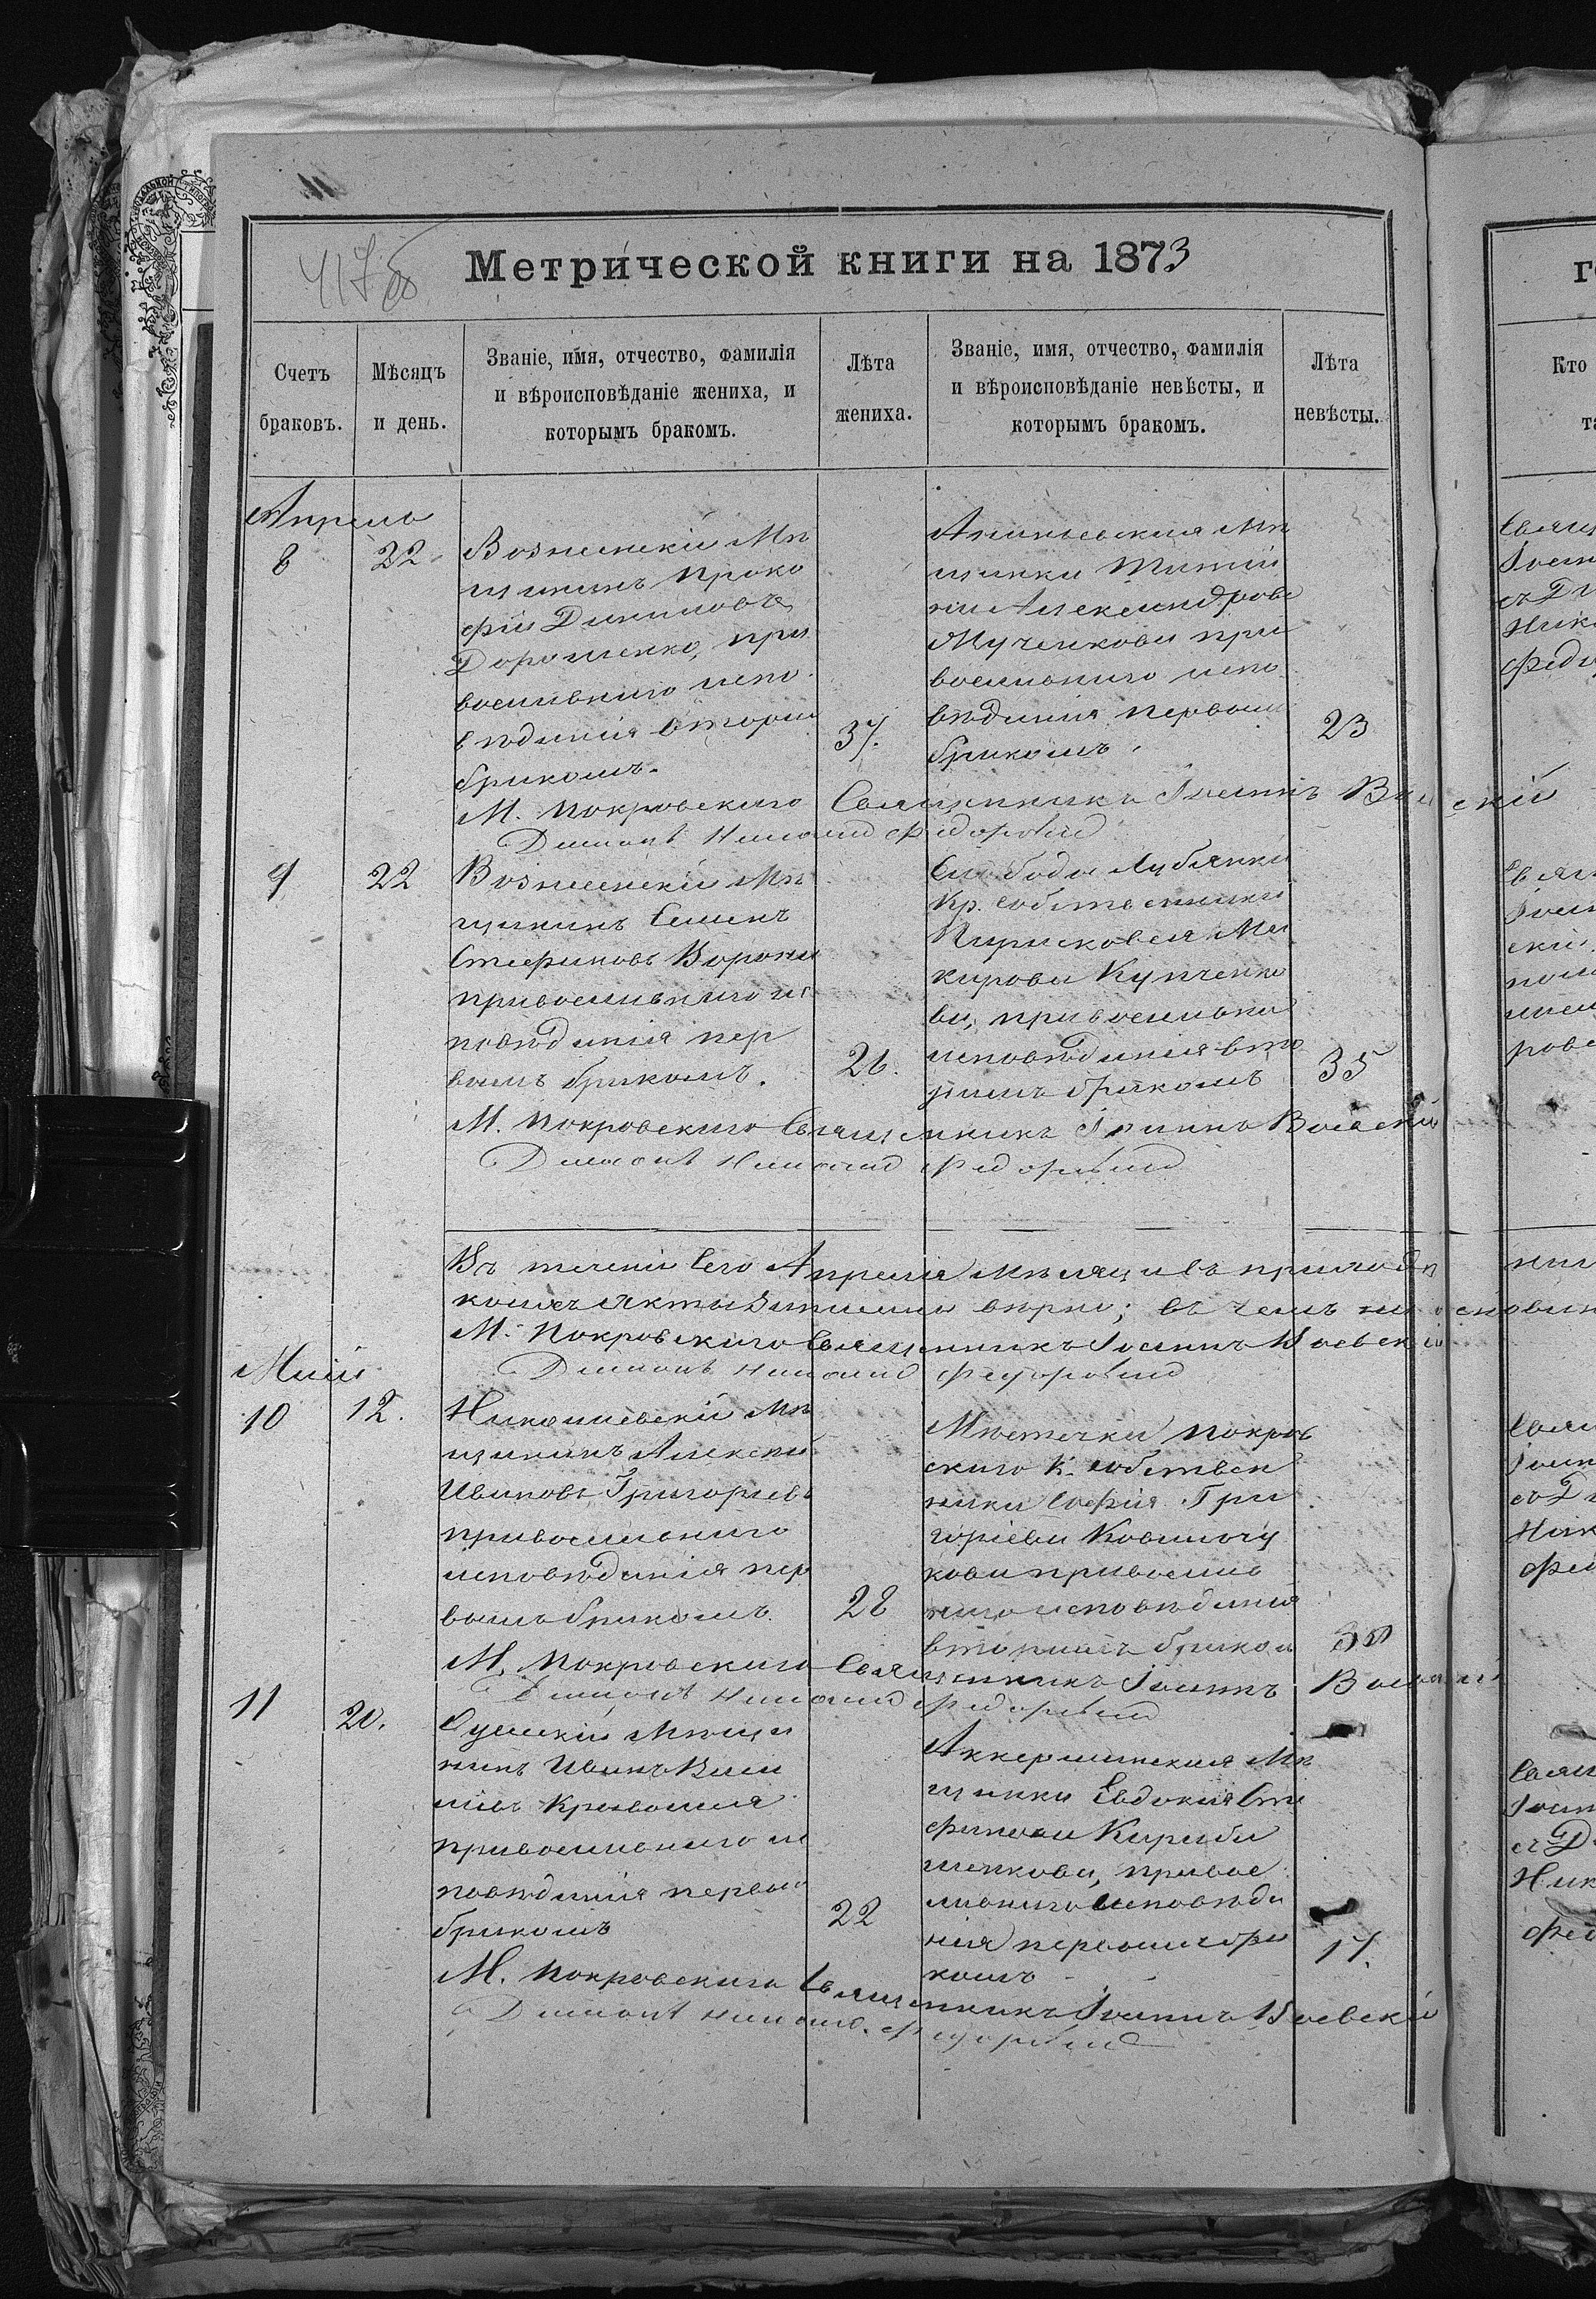 417 об
Метрической книги на 1873
Счетъ браковъ.
Мѣсяцъ и день.
Званіе, имя, отчество, фамилія
и вѣроисповѣданіе жениха, и
которымъ бракомъ.
Лѣта
жениха.
Званіе, имя, отчество, фамилія
и вѣроисповѣданіе невѣсты, и
которымъ бракомъ.
Лѣта
невѣсты.
Апрель
8
22
Вознесенскій Мѣ
щанинъ Проко
фій Даниловъ
Дорошенко, пра
вославнаго испо
вѣданія вторымъ
бракомъ.
37.
Ананьевская Мѣ
щанка
Александрова
Мученкова пра
вославнаго испо
вѣданія первымъ
бракомъ.
23
М. Покровскаго Священникъ Іоаннъ
Діаконъ Николай Федоровъ
9
22
Вознесенскій Мѣ
щанинъ Семенъ
Стефановъ Ворона
православнаго ис
повѣданія пер
вымъ бракомъ.
26.
Слободы Лубянки
Кр. собственника
Параскова Ма
карова Купченко
ва, православна
исповѣданія вто
рымъ бракомъ
35
М. Покровскаго Священникъ Іоаннъ Воевскій
Діаконъ Николай Федоровъ
Въ теченіи сего Апреля мѣсяца въ приходѣ
комъ акты записаны вѣрно; въ чемъ
М. Покровскаго Священникъ Іоаннъ Воевскій
Діаконъ Николай Федоровъ
Май
10
12.
Николаевскій Мѣ
щанинъ Алексѣй
Ивановъ Григорьевъ
православнаго
исповѣданія пер
вымъ бракомъ.
28
Мѣстечка Покров
скаго К. собствен
ника Софія Гри
горіева Ковальчу
кова православ
наго исповѣданія
вторымъ браком
30
М. Покровскаго Священникъ Іоаннъ Воевскій
Діаконъ Николай Федоровъ
11
20.
Одесскій Мѣща
нинъ Иванъ Васи
ліевъ
православнаго ис
повѣданія первымъ
бракомъ
22
Аккерманская Мѣ
щанка Евдокія Сте
фанова Караба
ненкова, правос
лавнаго исповѣда
нія первымъ бра
комъ
17.
М. Покровскаго Священникъ Іоаннъ Воевскій
Діаконъ Николай Федоровъ
Кто